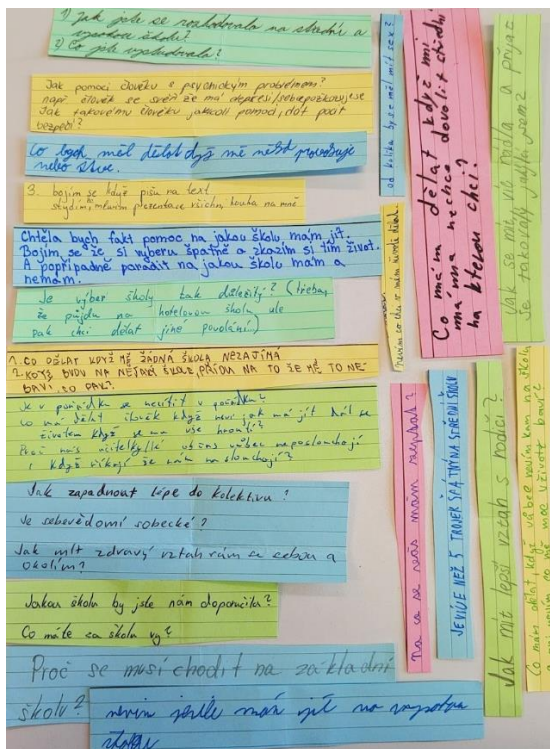 1) Jak jste se rozhodovala na střední a
vysokou školu?
2) Co jste vystudovala?
Jak pomoci člověku s psychickým problémem?
např. člověk se svěří že má depresi/sebepoškozuje se
Jak takovému člověku jakkoli pomoci, dát pocit
bezpečí?
Co bych měl dělat dyž mě někdo provokuje
nebo štve.
3. bojím se když píšu na text.
stydím mluvím prezentace všichni kouka na mně
Chtěla bych fakt pomoc na jakou školu mám jít.
Bojím se že si vyberu špatně a zkazím si tím život.
A popřípadně poradit na jakou školu mám a
nemám.
Je výběr školy tak důležitý? (třeba,
že půjdu na hotelovou školu ale
pak chci dělat jiné povolání)
1. CO DĚLAT KDYŽ MĚ ŽÁDNÁ ŠKOLA NEZAJÍMÁ
2. KDYŽ BUDU NA NĚJAKÉ ŠKOLE, PŘIJDU NA TO ŽE MĚ TO NE
BAVÍ, CO PAK?
Je v pořádku se necítit v pořádku?
Co má dělat člověk když neví jak má jít dál se
životem když se mu vše hroutí?
Proč nás učitelé/lké vůbec neposlouchají
i když říkají že nám naslouchají?
Jak zapadnout lépe do kolektivu?
Je sebevědomí sobecké?
Jak mít zdravý vztah sám se sebou a
okolím?
Jakou školu by jste nám doporučila?
Co máte za školu vy?
Proč se musí chodit na základní
školu?
nevím jestli mám jít na
od kolika by se měl mít sex?
Co mám dělat když mi
máma nechce dovolit střední
na kterou chci?
Jak se mít víc ráda a přijat
se takovou jakou jsem?
Nevím co chci v mém životě dělat.
Na co se vás mám zeptat?
JE VÍCE NEŽ 5 TROJEK ŠPATNÝ NA STŘEDNÍ ŠKOLU
Jak mít lepší vztah s rodiči?
Co mám dělat, když vůbec nevím kam na školu
a nevím co mě moc v životě baví?